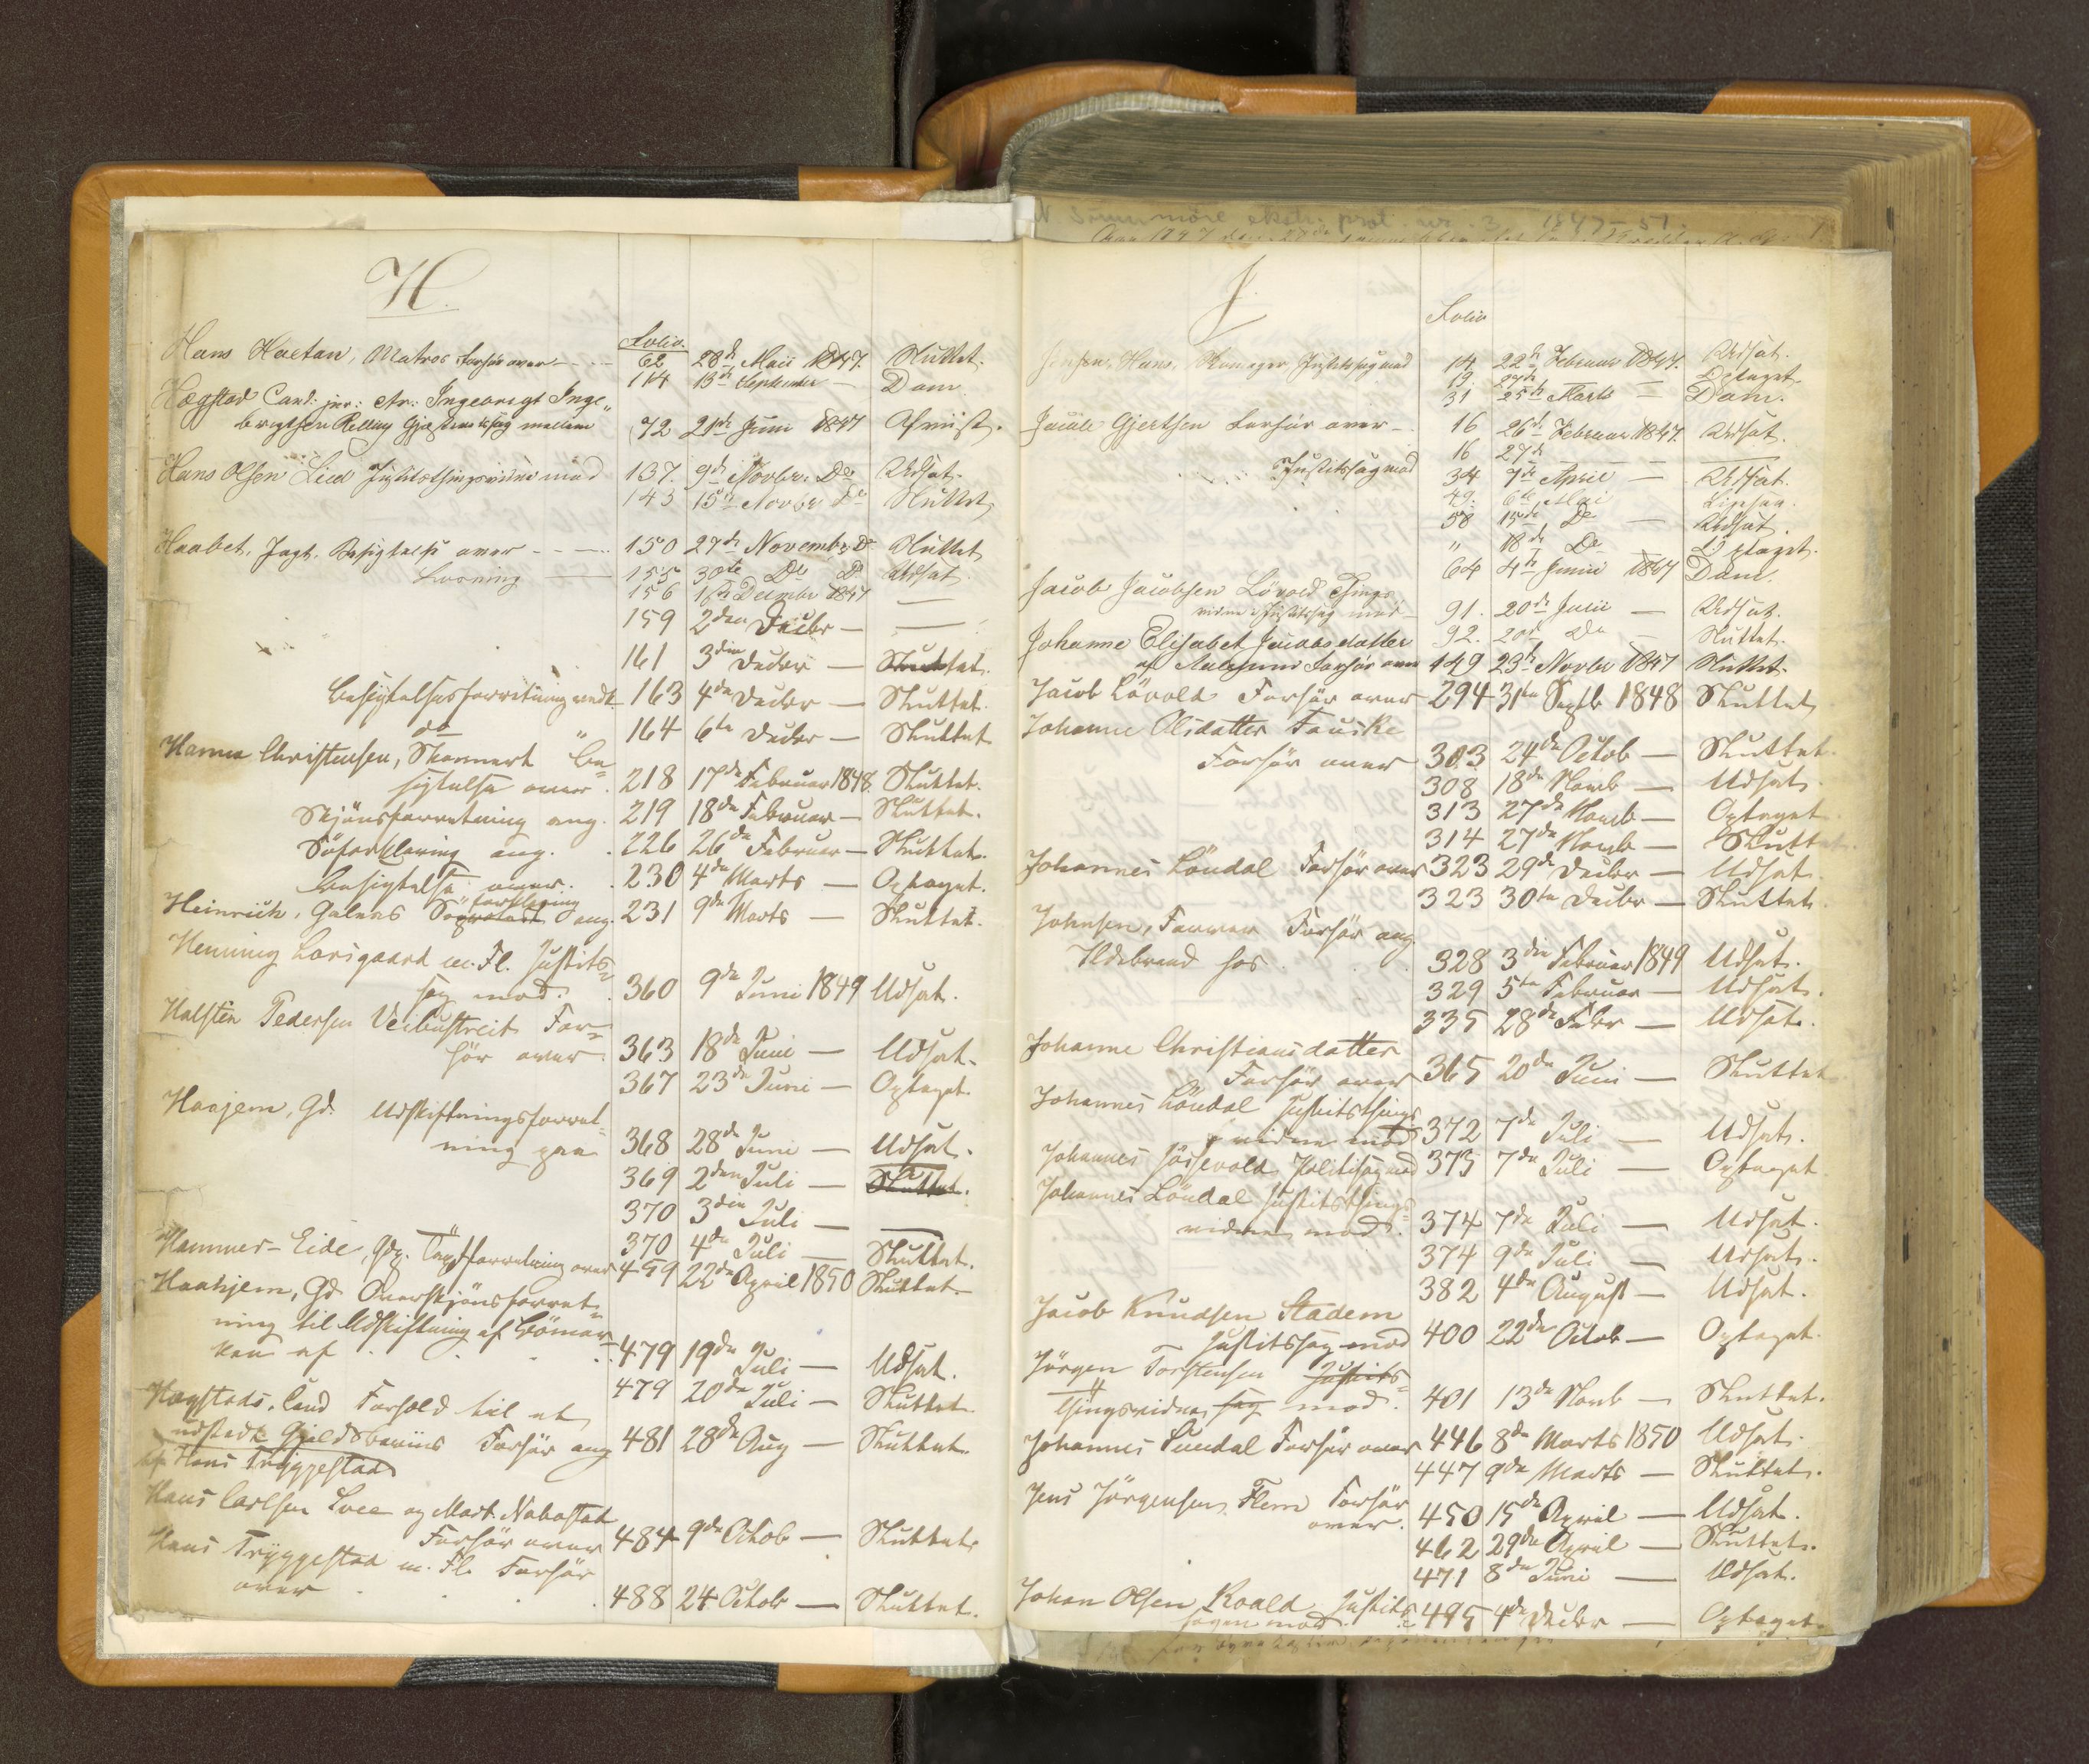 H.
Folio.
Hans Haetan, Matros Forhör over 62 28de Maii 1847. Sluttet.
114 13de September — Dom
Hægstad Cand: jur: ctr: Ingebrigt Inge„
brigtsen Relling Gjæsteretssag mellem 72 21de Juni 1847 Afviist.
Hans Olsen Lied Justitsthingsvidne mod 137. 9de Novbr. Do Udsat.
143 15de Novbr Do Sluttet
Haabet, Jagt, Besigtelse over 150 27de Novembr Do Sluttet
Losning 155 30te Do Do Udsat.
156 1ste Decembr 1847 —
159 2den Decbr — —
161 3die Decbr — Sluttet.
Besigtelsesforretning vedk. 163 4de Decbr — Sluttet.
do „ 164 6te Decbr — Sluttet
Hanna Christensen, Skonnert Be=
sigtelse over. 218 17de Februar 1848. Sluttet.
Skjönsforretning ang. 219 18de Februar — Sluttet.
Söforklaring ang. 226 26de Februar — Sluttet.
Besigtelse over. 230 4de Marts — Optaget.
forklaring
Heinrich, Galeas Söprotest ang. 231 9de Marts — Sluttet.
Henning Larsgaard m. Fl. Justits=
sag mod. 360 9de Juni 1849 Udsat.
Halsten Pedersen Veibustreit For=
hör over. 363 18de Juni — Udsat.
367 23de Juni — Optaget.
Haajem, Gd. Udskiftningsforret=
ning paa 368 28de Juni — Udsat.
369 2den Juli — Sluttet.
370 3die Juli — —
370 4de Juli — Sluttet.
Hammer-Eide, Gdr. forretning over 459 22de April 1850 Sluttet.
Haahjem, Gd Overskjönsforret=
ning til Udskiftning af
ken af 479 19de Juli — Udsat.
479 20de Juli — Sluttet
Hægstads, Cand Forhold til et
udstedt Gjeldsbeviis Forhör ang 481 28de Aug — Sluttet.
af Hans Tryggestad
Hans Carlsen Svee og Mart. Nabostat
Forhör over 484 9de Octob — Sluttet.
Hans Tryggestad m. Fl. Forhör
over 488 24 Octob — Sluttet.
J.
Folio
Jensen, Hans, Skomager, Justitssag mod 14 22de Februar 1847. Udsat.
19. 27de — Optaget.
31 25de Marts — Dom.
Jacob Gjertsen Forhör over 16 26de Februar 1847. Udsat.
16 27de — —
Justitssag mod 34 7de April — Udsat.
49. 6te Mai
58 15de Do — Udsat.
„ 18de Do Optaget.
64 4de Junii 1847 Dom.
Jacob Jacobsen Lövold Things
vidne i Justitssag mod 91. 20de Julii — Udsat.
92. 20de Do — Sluttet.
Johanne Elisabet Jacobsdatter
af Aalesund Forhör over 149 23de Novbr 1847 Sluttet.
Jacob Lövold Forhör over 294 31te Septb 1848 Sluttet
Johanne Olsdatter Fauske
Forhör over 303 24de Octob — Sluttet.
308 18de Novb — Udsat.
313 27de Novb — Optaget.
314 27de Novb — Sluttet
Johannes Löndal Forhör over 323 29de Decbr — Udsat.
323 30te Decbr — Sluttet.
Johnsen, Farver Forhör ang.
Ildebrand hos 328 3die Februar 1849 Udsat.
329 5te Februar — Udsat.
335 28de Febr — Udsat.
Johanne Christiansdatter
Forhör over 365 20de Juni — Sluttet
Johannes Löndal Justitsthings
vidne mod 372 7de Juli — Udsat.
Johannes Politisag mod 373 7de Juli — Optaget
Johannes Löndal Justitsthings=
vidne mod. 374 7de Juli — Udsat.
374 9de Juli — Udsat.
382 4de August — Udsat.
Jacob Knudsen Stadem
Justitssag mod 400 22de Octob — Optaget.
Jörgen Torstensen Justits=
Thingsvidne sag mod. 401 13de Novb — Sluttet.
Johannes Sundal Forhör over 446 8de Marts 1850 Udsat.
447 9de Marts — Sluttet.
Jens Jörgensen Flem Forhör
over. 450 15de April — Udsat.
462 29de April — Sluttet.
471 8de Juni — Udsat.
Johan Olsen Roald Justits=
sagen mod. 495 4de Decbr — Optaget.
Sunnmöre ekstr. prot. nr. 3 1847-51.